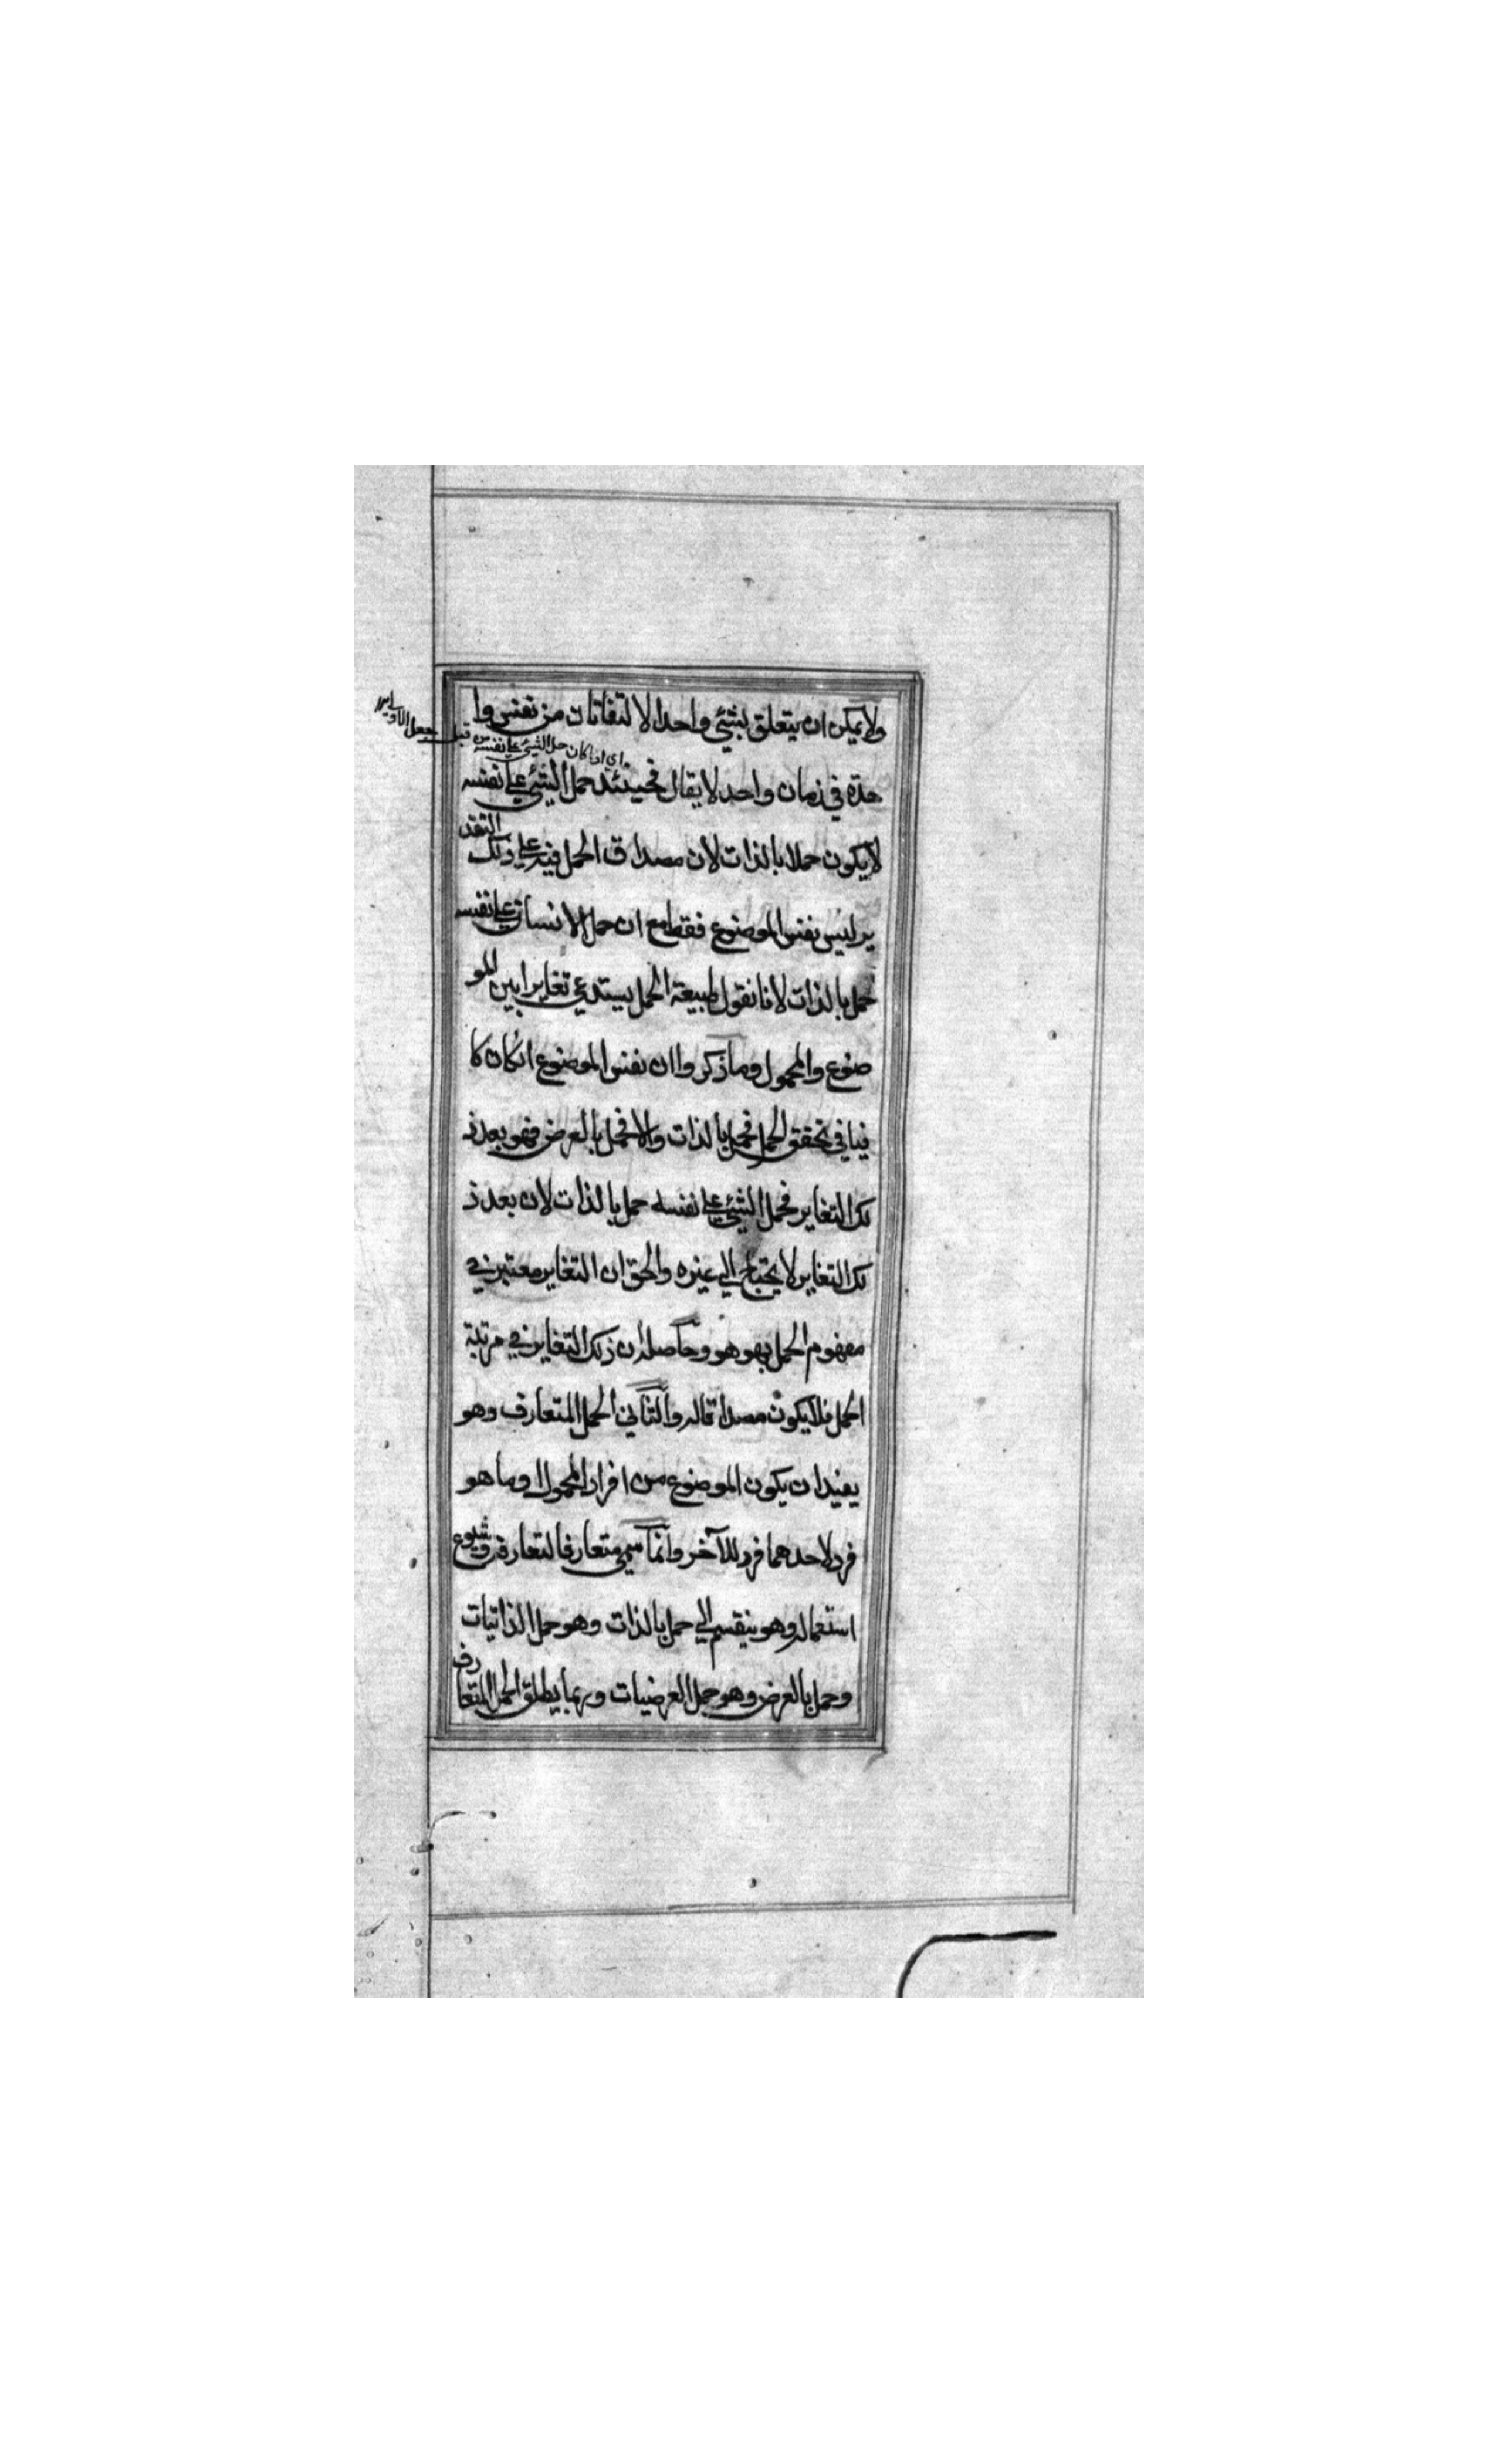 ولا يمكن ان يتعلق بشيئ واحد الالتفاتان من نفس وا
اي اذا كان حمل الشيئ علي نفسه من قبيل حمل الاولي
حدة في زمان واحد لا يقال فحينئذ حمل الشيئ علي نفسه
لا يكون حملا بالذات لان مصداق الحمل فيه علي ذلك التقد
ير ليس نفس الموضوع فقط مع ان حمل الانسان علي نفسه
حمل بالذات لانا نقول طبيعة الحمل يستدعي تغايرا بين المو
ضوع والمحمول وما ذكروا ان نفس الموضوع انكان كا
فيا في تحقق الحمل فحمل بالذات والا فحمل بالعرض فهو بعد ذ
لك التغاير فحمل الشيئ علي نفسه حمل بالذات لان بعد ذ
لك التغاير لا يحتاج الي غيره والحق ان التغاير معتبر في
مفهوم الحمل بهو هو وحاصله ان ذلك التغاير في مرتبة
الحمل فلا يكون مصداقا له والثاني الحمل المتعارف وهو
يفيد ان يكون الموضوع من افراد المحمول او ما هو
فرد لاحدهما فرد للآخر وانما سمي متعارفا لتعارفه وشيوع
استعماله وهو ينقسم الي حمل بالذات وهو حمل الذاتيات
وحمل بالعرض وهو حمل العرضيات وربما يطلق الحمل المتعارف